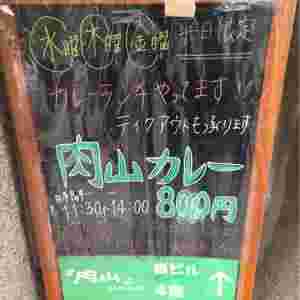 水曜 木曜 金曜 平日限定
カレーランチやってます!!
テイクアウトも承ります
肉山カレー
11:30~14:00 800円
肉山
ビル
4階